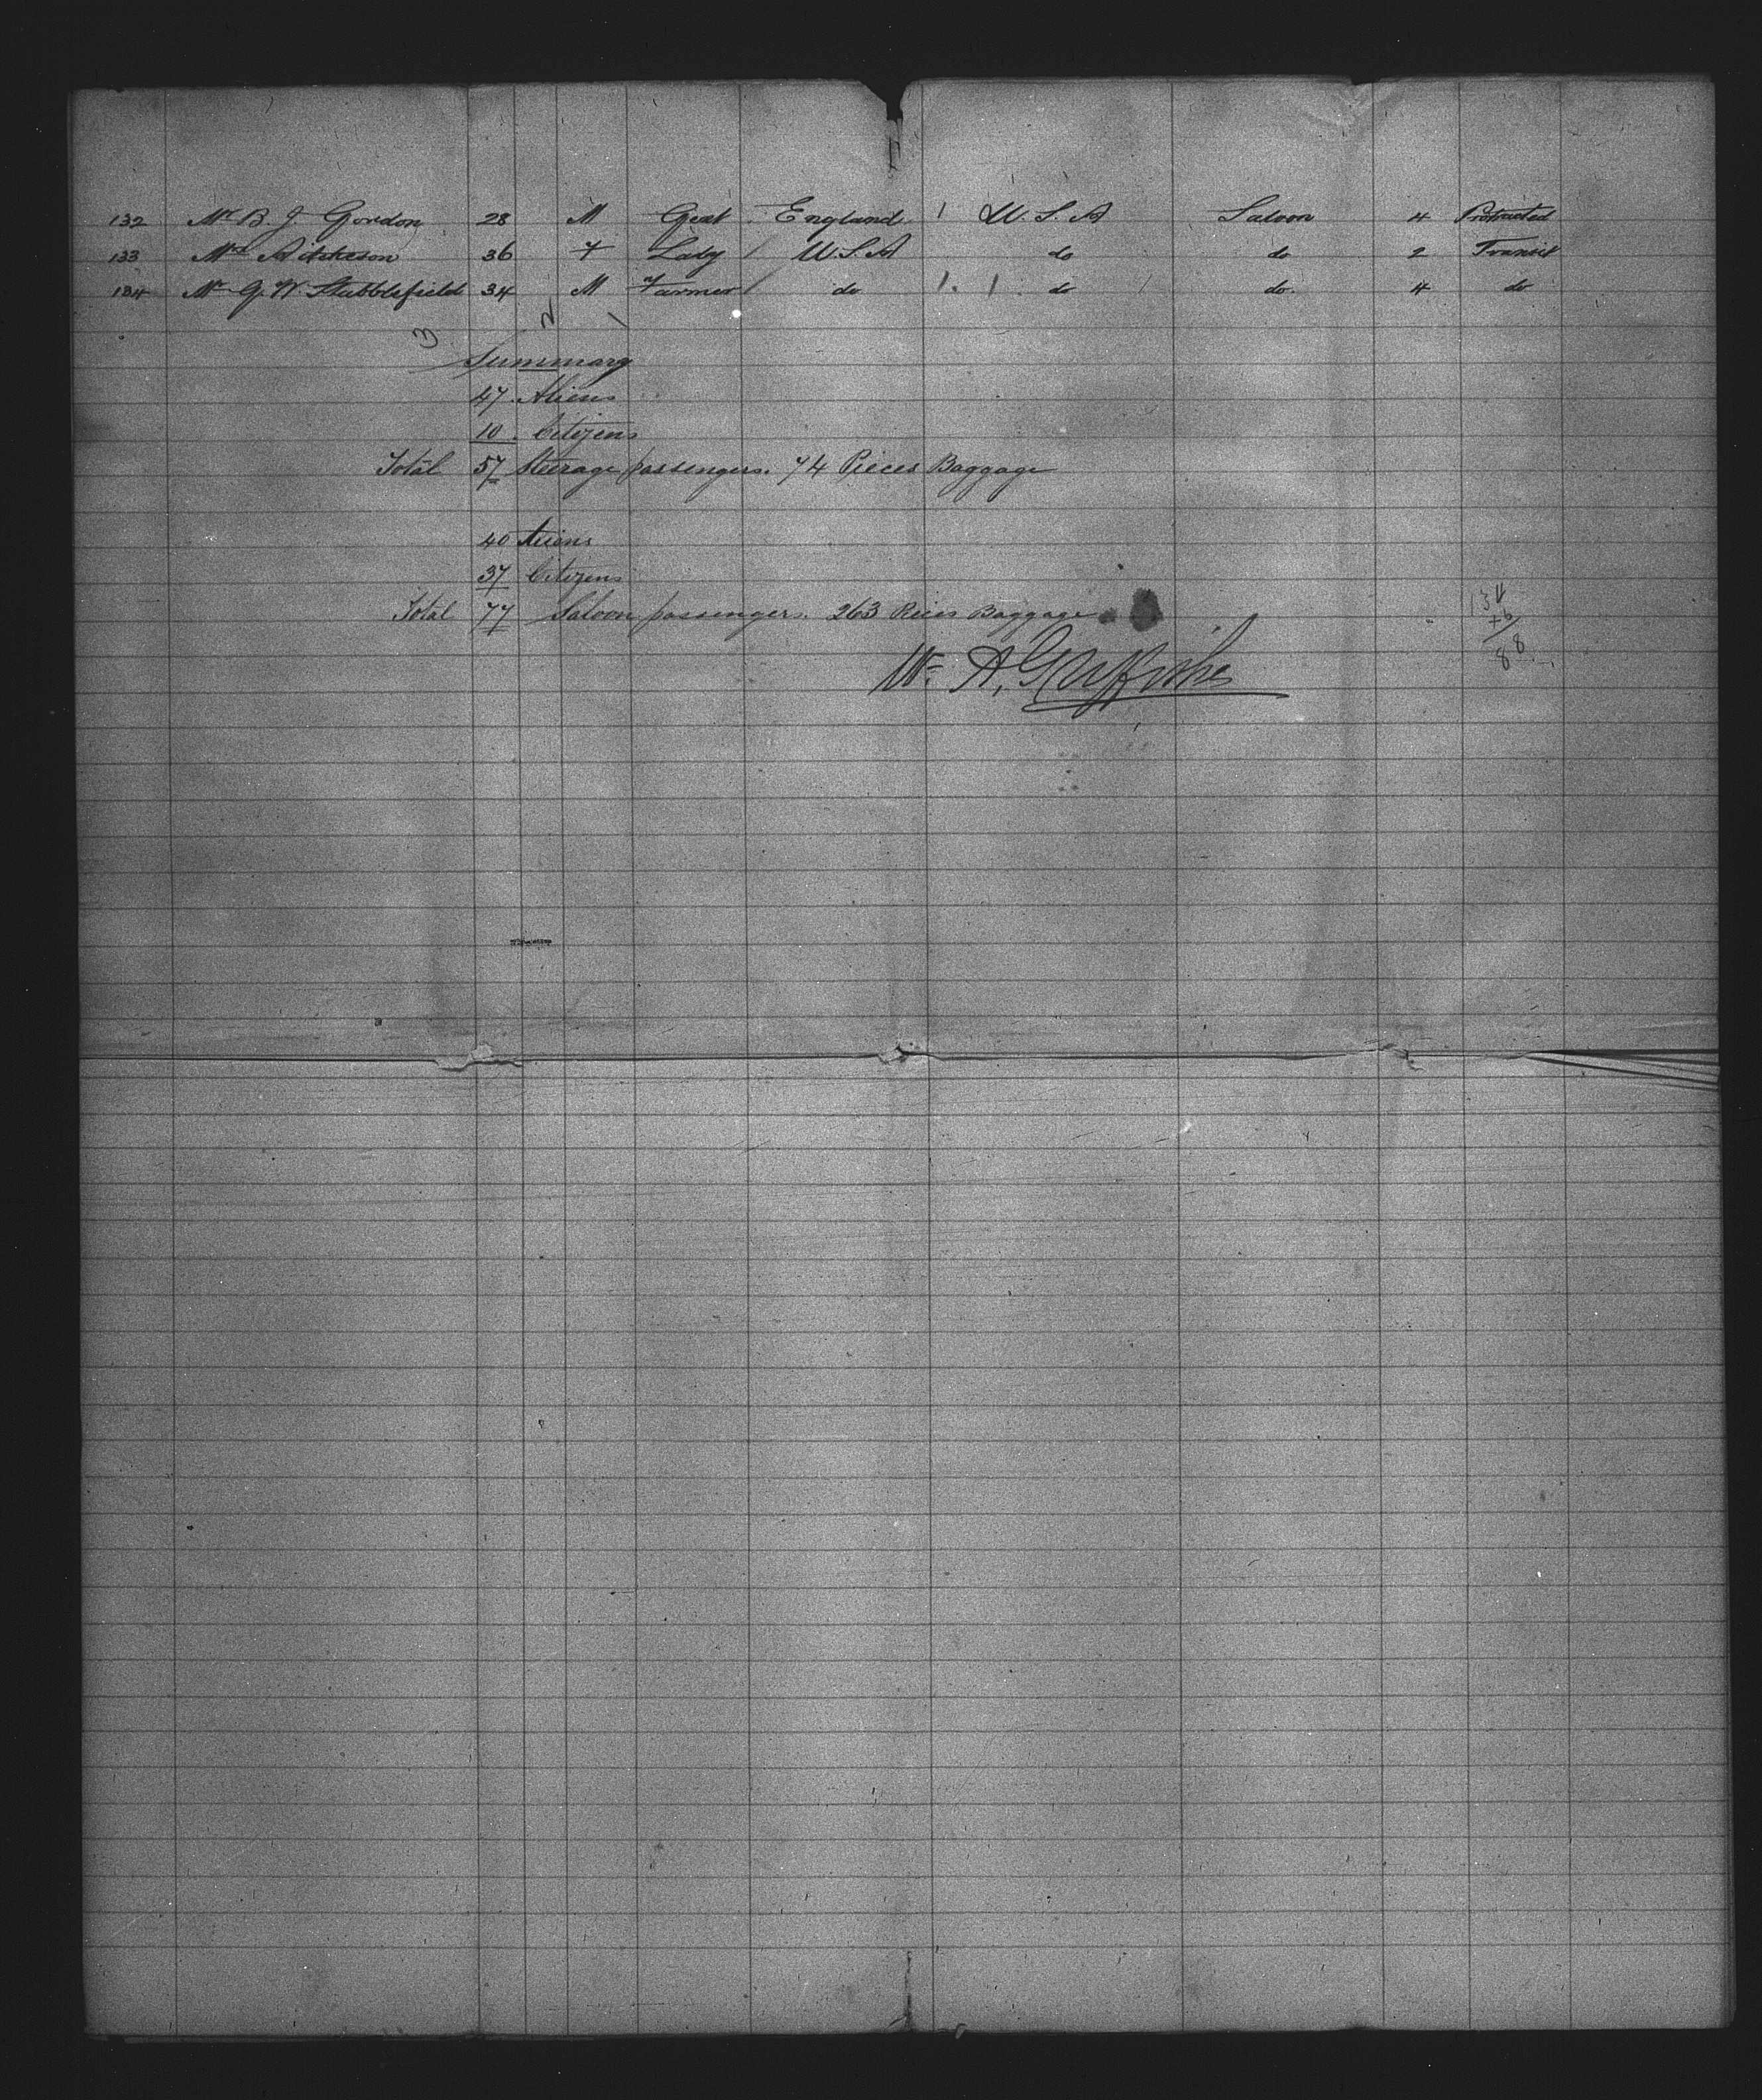 132 Mr B J Gordon 28 M Gent England 1 U.S.A Saloon 4 Protracted
133 Mrs Aitkeson 36 F Lady / U.S.A do do 2 Transit
134 Mr G. W. Stubblefield 34 M Farmer / do 1. 1 do do. 4 do
3 2 1
Summary
47 Aliens
10 Citizens
Total 57 Steerage passengers. 74 Pieces Baggage
40 Aliens
37 Citizens
Total 77 Saloon passengers. 263 Pieces Baggage
134
88
W. A. Griffiths